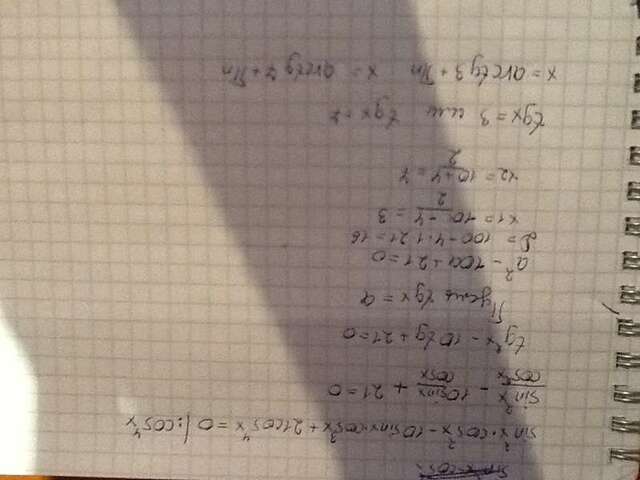 sin x cos
sin²x · cos²x - 10 sinx · cos³x + 21cos⁴x = 0 | : cos⁴x
sin²x/cos²x - 10sinx/cosx + 21 = 0
tg²x - 10tg + 21 = 0
Пусть tgx = a
a² - 10a + 21 = 0
D = 100 - 4·1·21 = 16
x1 = 10-4/2 = 3
x2 = 10+4/2 = 7
tgx = 3 или tgx = 7
x = arctg 3 + πn x = arctg 7 + πn